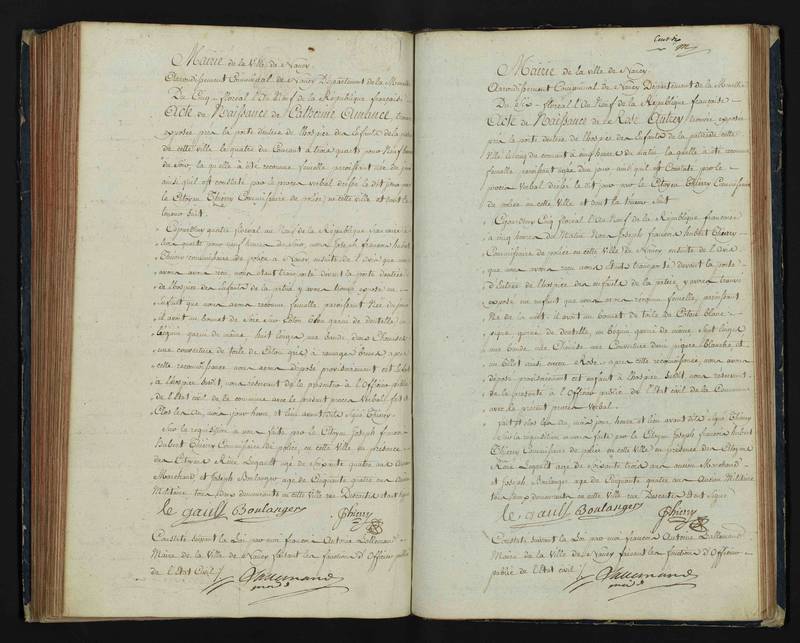 Mairie de la Ville de Nancy.
Arrondissement Communal de Nancy Département de la Meurthe
Du Cinq floréal l'An Neuf de la République française
Acte de Naissance de Catherine Amance, trouvée
exposée près la porte d'entrée de l'hospice des Enfants de la patrie
de cette ville le quatre du Courant à trois quarts pour Neuf heures
du Soir, la quelle a été reconnue femelle paroissant née du jour
ainsi qu'il est constaté par le procès verbal dressé le dit jour par
le Citoyen Thiery Commissaire de police, en cette ville et dont la
teneur suit.
Cejourd'huy quatre floréal an Neuf de la République française à
trois quarts pour neuf heures du soir, nous Joseph françois hubert
Thiery commissaire de police à Nancy, ensuite de l'avis que nous
avons reçu, nous étant transporté devant la porte d'entrée
de l'hospice des Enfants de la patrie y avons trouvé exposé un
Enfant que nous avons reconnu femelle, paroissant Née du jour
il avoit un bonnet de
béguin garni de même, huit langes, une bande
une couverture de toile de Coton
cette reconnoissance nous avons déposé provisoirement cet Enfant
à l'hospice susdit, nous réservant de le présenter à l'Officier public
de l'Etat Civil de la commune avec le présent procès Verbal, fait et
Clos les an, mois jour heure et lieu avant dits signé Thiery.
Sur la réquisition à nous faite par le Citoyen Joseph françois
hubert Thiery Commissaire de police, en cette Ville, en présence
des Citoyens Réné Legault agé de soixante quatre ans Ancien
Marchand et Joseph Boulanger agé de Cinquante quatre ans Ancien
Militaire, tous deux demeurants en cette Ville rue Descartes et ont signé
le gault Boulanger Thiery
Constaté, suivant la Loi par moi françois Antoine Lallemand
Maire de la Ville de Nancy faisant les fonctions d'Officier public
de l'Etat Civil.
Lallemand
Mairie de la ville de Nancy.
Arrondissement Communal de Nancy Département de la Meurthe
Du Six floréal l'An Neuf de la République française
Acte de Naissance de la Rose Autrey trouvée exposée
près la porte d'entrée de l'hospice des Enfants de la patrie de cette
Ville le cinq du courant à cinq heures du matin, la quelle a été reconnue
femelle paroissant née du jour ainsi qu'il est Constaté par le
procès Verbal dressé le dit jour par le Citoyen Thiery Commissaire
de police en cette Ville et dont la teneur suit
Cejourd'huy Cinq floréal l'An Neuf de la République française
à cinq heures du Matin Nous Joseph françois hubert Thiery
Commissaire de police en cette Ville de Nancy ensuite de l'avis
que nous avons reçu nous étant transporté devant la porte
d'Entrée de l'hospice des enfants de la patrie, y avons trouvé
exposé un enfant que nous avons reconnu femelle, paroissant
Née de la nuit, il avoit un bonnet de toile de Coton blanc
piqué, garni de dentelle, un béguin garni de même, huit langes
une bande une Chemise une Couverture piquée blanche et
un billet ainsi conçu Rose. après cette reconnoissance, nous avons
déposé provisoirement cet enfant à l'hospice susdit, nous réservant
de la présenter à l'Officier public de l'Etat civil de la Commune
avec le présent procès Verbal.
fait et clos les an, mois jour, heure et lieu avant dits signé Thiery
Sur la réquisition à nous faite par le Citoyen Joseph françois hubert
Thiery Commissaire de police en cette Ville en présence des Citoyens
Réné Legault agé de soixante trois ans ancien Marchand
et Joseph Boulanger agé de Cinquante quatre ans Ancien Militaire
tous deux demeurants en cette Ville rue Descartes et ont signé
le gault Boulanger Thiery
Constaté, suivant la Loi par moi françois Antoine Lallemand
Maire de la Ville de Nancy faisant les fonctions d'Officier
public de l'Etat civil.
Lallemand